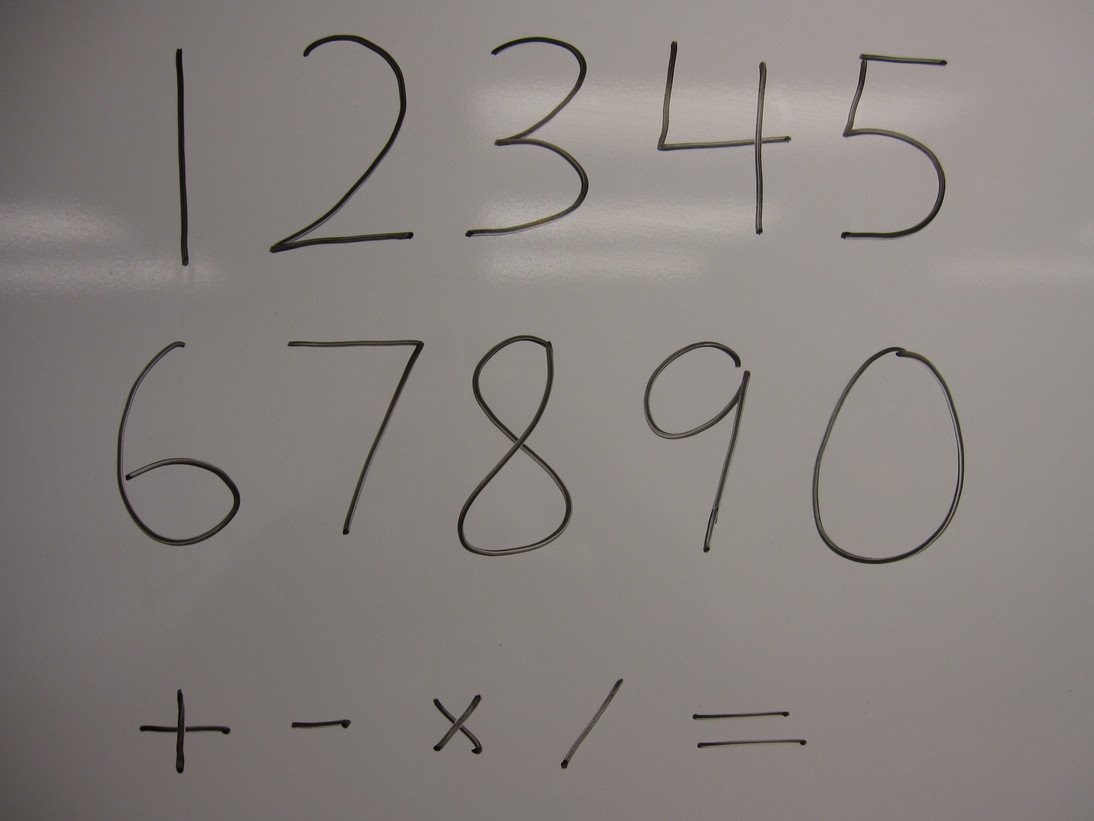 1 2 3 4 5
6 7 8 9 0
+ - × / =